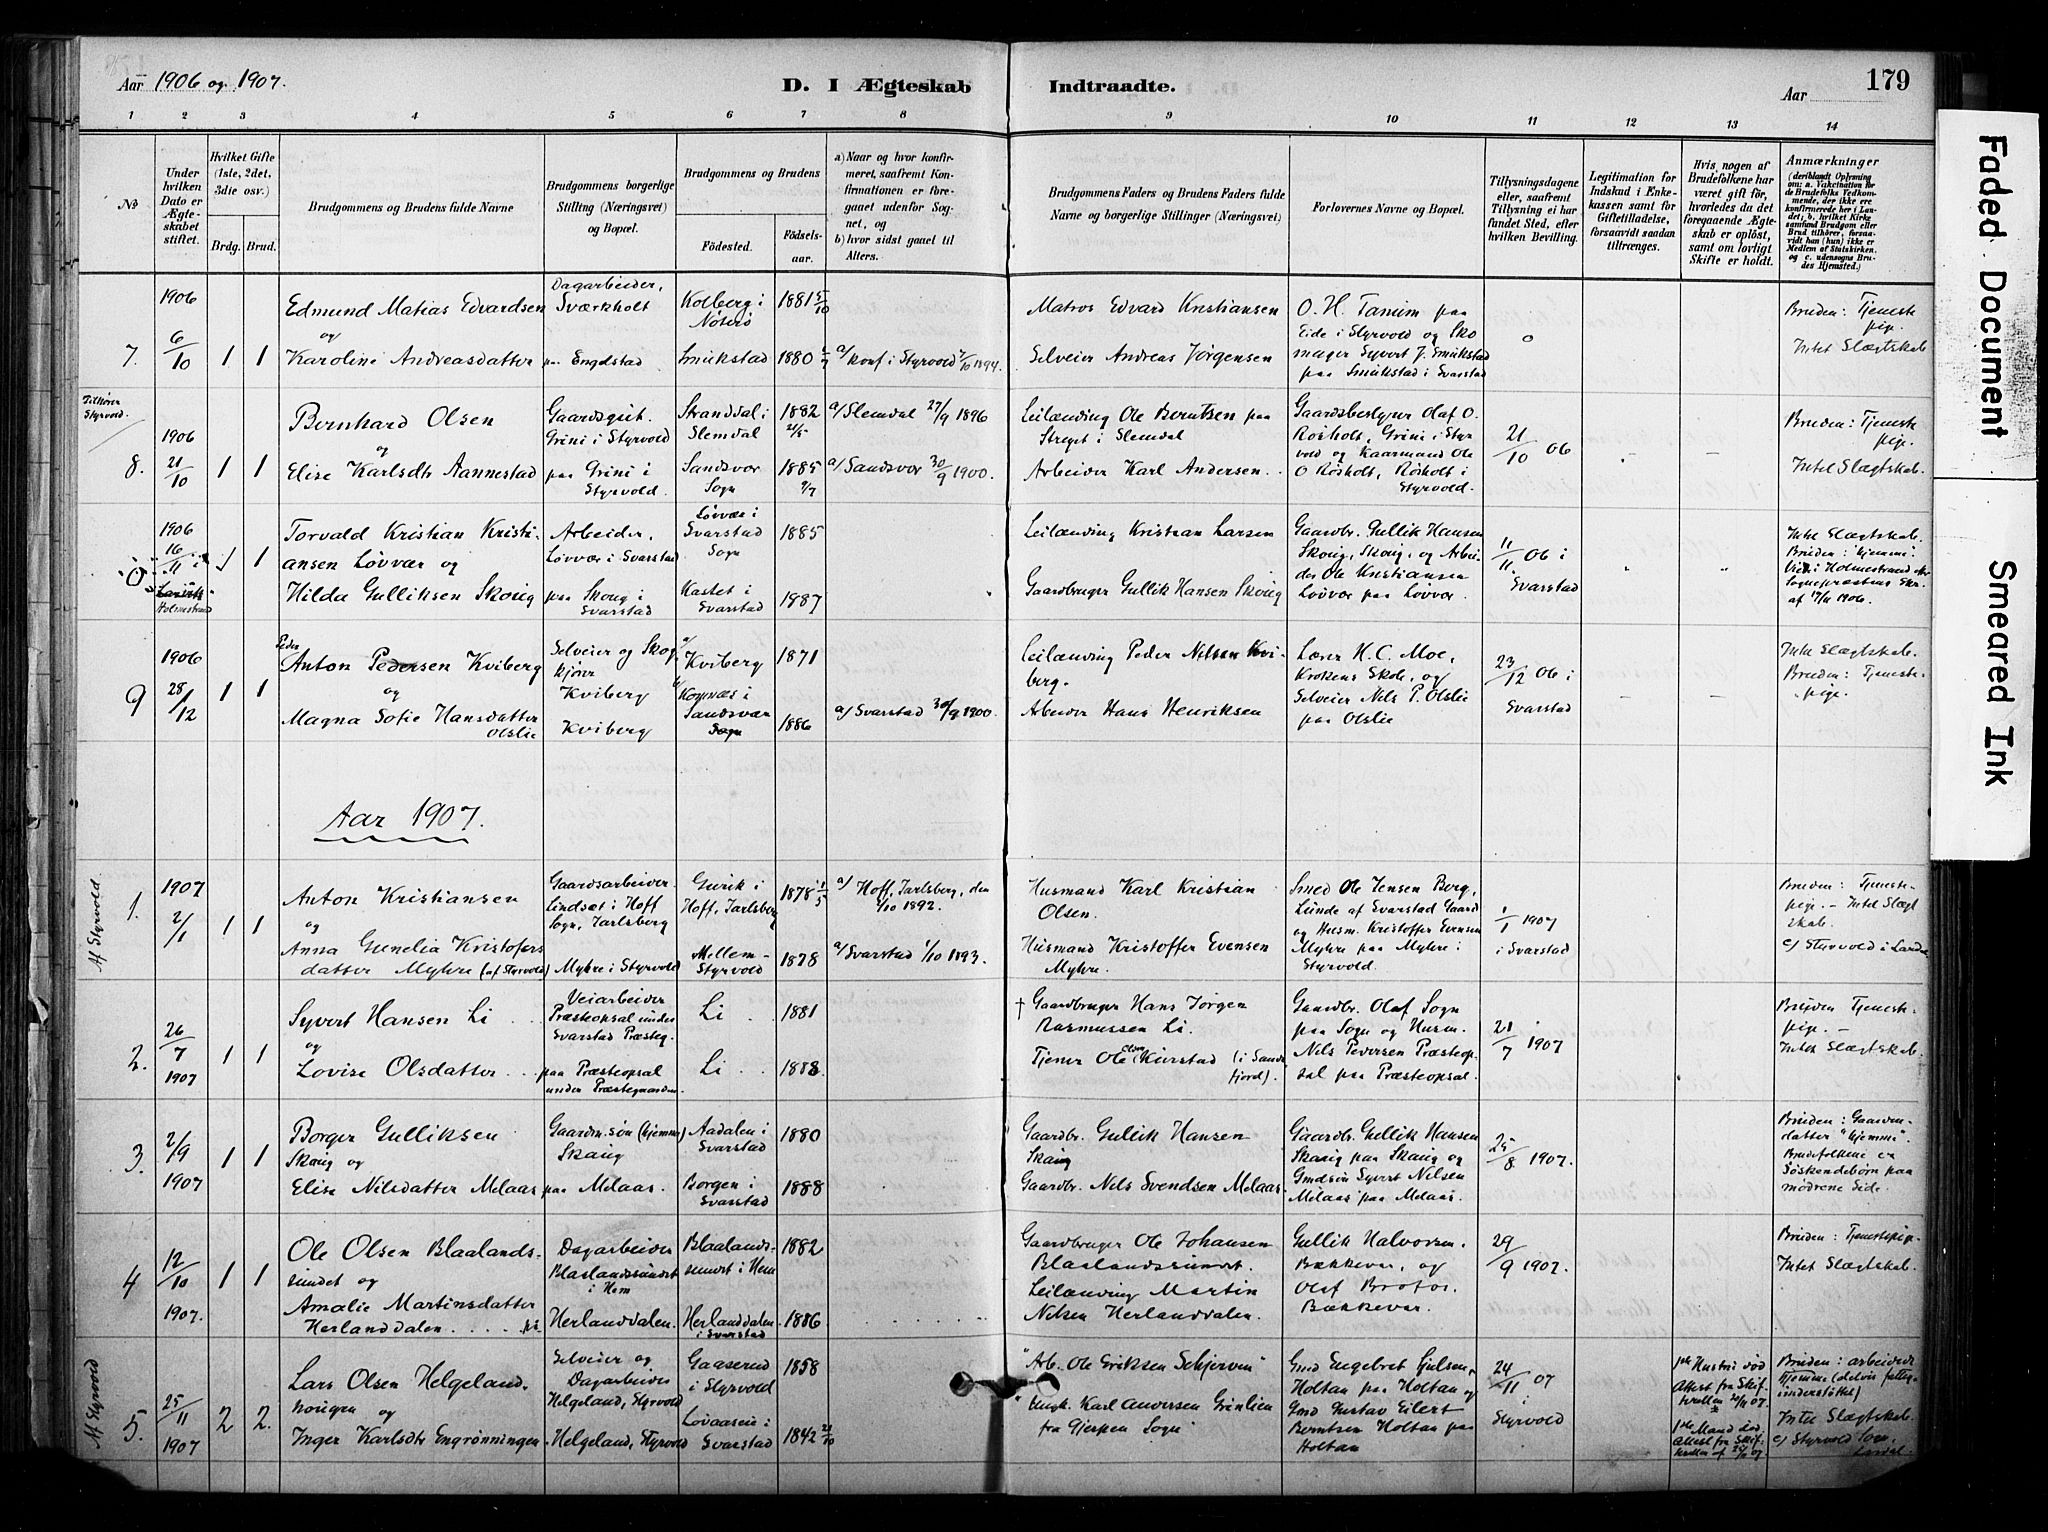 Aar 1906 og 1907.
D. I Ægteskab Indtraadte.
179
Aar
1 2 3 4 5 6 7 8 9 10 11 12 13 14
No
Under hvilken Dato er Ægteskabet stiftet.
Hvilket Gifte (1ste, 2det, 3die osv.)
Brdg. Brud.
Brudgommens og Brudens fulde Navne
Brudgommens borgerlige Stilling (Næringsvei) og Bopæl.
Brudgommens og Brudens
Fødested.
Fødselsaar.
a) Naar og hvor konfirmeret, saafremt Konfirmationen er foregaaet udenfor Sognet, og
b) hvor sidst gaaet til Alters.
Brudgommens Faders og Brudens Faders fulde Navne og borgerlige Stillinger (Næringsvei)
Forlovernes Navne og Bopæl.
Tillysningsdagene eller, saafremt Tillysning ei har fundet Sted, efter hvilken Bevilling.
Legitimation for Indskud i Enkekassen samt for Giftetilladelse, forsaavidt saadan tiltrænges.
Hvis nogen af Brudefolkene har været gift før, hvorledes da det foregaaende Ægteskab er opløst, samt om lovligt Skifte er holdt.
Anmærkninger
(deriblandt Oplysning om: a. Vakcination for de Brudefolks Vedkommende, der ikke ere konfirmerede her i Landet; b. hvilket Kirkesamfund Brudgom eller Brud tilhører, forsaavidt han (hun) ikke er Medlem af Statskirken, og c. udensogns Brudes Hjemsted.)
7. 1906 6/10 1 1
Edmund Matias Edvardsen
og
Karoline Andreasdatter
Dagarbeider, Sværkholt
paa Engdstad
Kolberg i Nøterø
Smukstad
1881 5/10
1880
a/ konf i Styrvold 1894.
Matros Edvard Kristiansen
Selveier Andreas Jørgensen
O. H. Tanum paa
Eide i Styrvold og Sko
mager Syvert J. Smukstad
paa Smukstad i Svarstad
Bruden: Tjeneste
pige
Intet Slægtskab
Tilhører
Styrvold.
8. 1906 21/10 1 1
Bernhard Olsen
og
Elise Karlsdtr Aannestad
Gaardsgut.
Grini i Styrvold
paa Grini i
Styrvold.
Stranddal i
Slemdal
Sandsvær
Sogn
1882 21/5
1885 2/7
a/ Slemdal 27/9 1896
a/ Sandsvær 30/9 1900.
Leilænding Ole Berntsen paa
Streget i Slemdal
Arbeider Karl Andersen.
Gaardsbestyrer Olaf O.
Rösholt, Grini i Styr
vold og Kaarmand Ole
O Rösholt, Rösholt i
Styrvold.
21/10 06
Bruden: Tjeneste
pige.
Intet Slægtskab.
1906
16/11 i
Holmestrand
1 1
Torvald Kristian Kristi-
ansen Løvvær og
Hilda Gulliksen Skoug
Arbeider,
Løvvær i Svarstad
paa Skoug i
Svarstad
Løvvær i
Svarstad
Sogn
Kastet i
Svarstad
1885
1987
Leilænding Kristian Larsen
Gaardbruger Gullik Hansen Skoug
Gaardbr. Gullik Hansen
Skoug, Skoug, og Arbei-
der Ole Kristiansen
Løvvær paa Løvvær.
11/11 06 i
Svarstad
Intet Slægtskab.
Bruden: hjemme.
Viet i Holmestrand
Sognepræstens Skr.
af 17/11 1906.
9 1906 28/12 1 1
Peder
Anton Pedersen Kviberg
og
Magna Sofie Hansdatter
Olslie
Selveier og Skog
kjører
Kviberg
Kviberg
a/ Kviberg
b/ Komnæs i
Sandsvær
Sogn
1871
1886
a/ Svarstad 30/9 1900.
Leilænding Peder Nilsen Kvi-
berg.
Arbeider Hans Henriksen
Lærer H. C. Moe,
Krokens Skole, og
Selveier Nels P. Olslie
paa Olslie
23/12 06 i
Svarstad
Intet Slægtskab.
Bruden: Tjeneste-
pige.
Aar 1907.
Af Styrvold.
1. 1907 2/1 1 1
Anton Kristiansen
og
Anna Gunelia Kristofers
datter Myhre (af Styrvold)
Gaardsarbeider.
Lindsæt i Hoff
Sogn, Jarlsberg
Myhre i Styrvold
Gurik i
Hoff, Jarlsberg
Mellem-
Styrvold
1878 1/5
1878
a/ Hoff, Jarlsberg, den
2/10 1892.
a/ Svarstad 1/10 1893.
Husmand Karl Kristian
Olsen.
Husmand Kristoffer Evensen
Myhre.
Smed Ole Jensen Berg,
Lunde af Svarstad Gaard
og Husm. Kristoffer Evensen
Myhre paa Myhre i
Styrvold.
1/1 1907
i Svarstad
Bruden: Tjeneste-
pige. – Intet Slægt
skab.
c/ Styrvold i Lardal
2. 26/7 1907 1 1
Syvert Hansen Li
og
Lovise Olsdatter
Veiarbeider
Præsteopsal under
Svarstad Præsteg.
paa Præsteopsal
under Præstegaarden
Li
Li
1881
1883.
† Gaardbruger Hans Jørgen
Rasmussen Li.
Tjener Ole Olsen Kiærstad (i Sande
fjord).
Gaardbr. Olaf Sogn
paa Sogn og Husm.
Nils Pedersen Præsteop-
sal paa Præsteopsal.
21/7 1907
Bruden Tjeneste-
pige. –
Intet Slægtskab.
3. 2/9 1907 1 1
Borger Gulliksen
Skaug og
Elise Nilsdatter Melaas
Gaardm.søn (hjemme)
Skaug
paa Melaas.
Aadalen i
Svarstad
Borgen i
Svarstad
1880
1888
Gaardbr. Gullik Hansen
Skaug
Gaardbr. Nels Svendsen Melaas.
Gaardbr. Gullik Hansen
Skaug paa Skaug og
Gmdsøn Syvert Nilsen
Melaas paa Melaas.
25/8 1907.
Bruden: Gaardm.
datter "hjemme".
Brudefolkene er
Søskendebørn paa
mødrene Side.
4 12/10 1907. 1 1
Ole Olsen Blaalands-
sundet og
Amalie Martinsdatter
Herlanddalen
Dagarbeider
Blaalandssundet
i Hem
Herlanddalen.
Blaalands-
sundet i Hem
Herlanddalen
i Svarstad
1882
1886
Gaardbruger Ole Johansen
Blaalandssundet.
Leilænding Martin
Nilsen Herlanddalen.
Gullik Halvorsen.
Bækkevar, og
Olaf Brofos.
Bækkevar.
29/9 1907.
Bruden: Tjenestepige
Intet Slægtskab.
Af Styrvold
5. 25/11 1907 2 2.
Lars Olsen Helgeland-
hougen og
Inger Karlsdtr Engrønningen
Selveier og
Dagarbeider
Helgeland, Styrvold
Helgeland, Styrvold
Gaaserud
i Styrvold
Løvaasen i
Svarstad
1858
1842 21/10
"Arb. Ole Eriksen Schjerven"
"Engk. Karl Andersen Grinlien
fra Gjerpen Sogn"
Gmd Engebret Gjelsen,
Holtan paa Holtan og
Gmd Gustav Eilert
Berntsen Holtan paa
Holtan
24/11 07
Styrvold
1ste Hustru død
Attest fra Skif-
teretten 07.
1ste Mand død
Attest fra Skif-
teretten
Bruden: arbeider
hjemme (delvis fattig-
understøttet)
Intet Slægtskab.
c/ Styrvold Sogn,
Lardal.
Faded Document
Smeared Ink